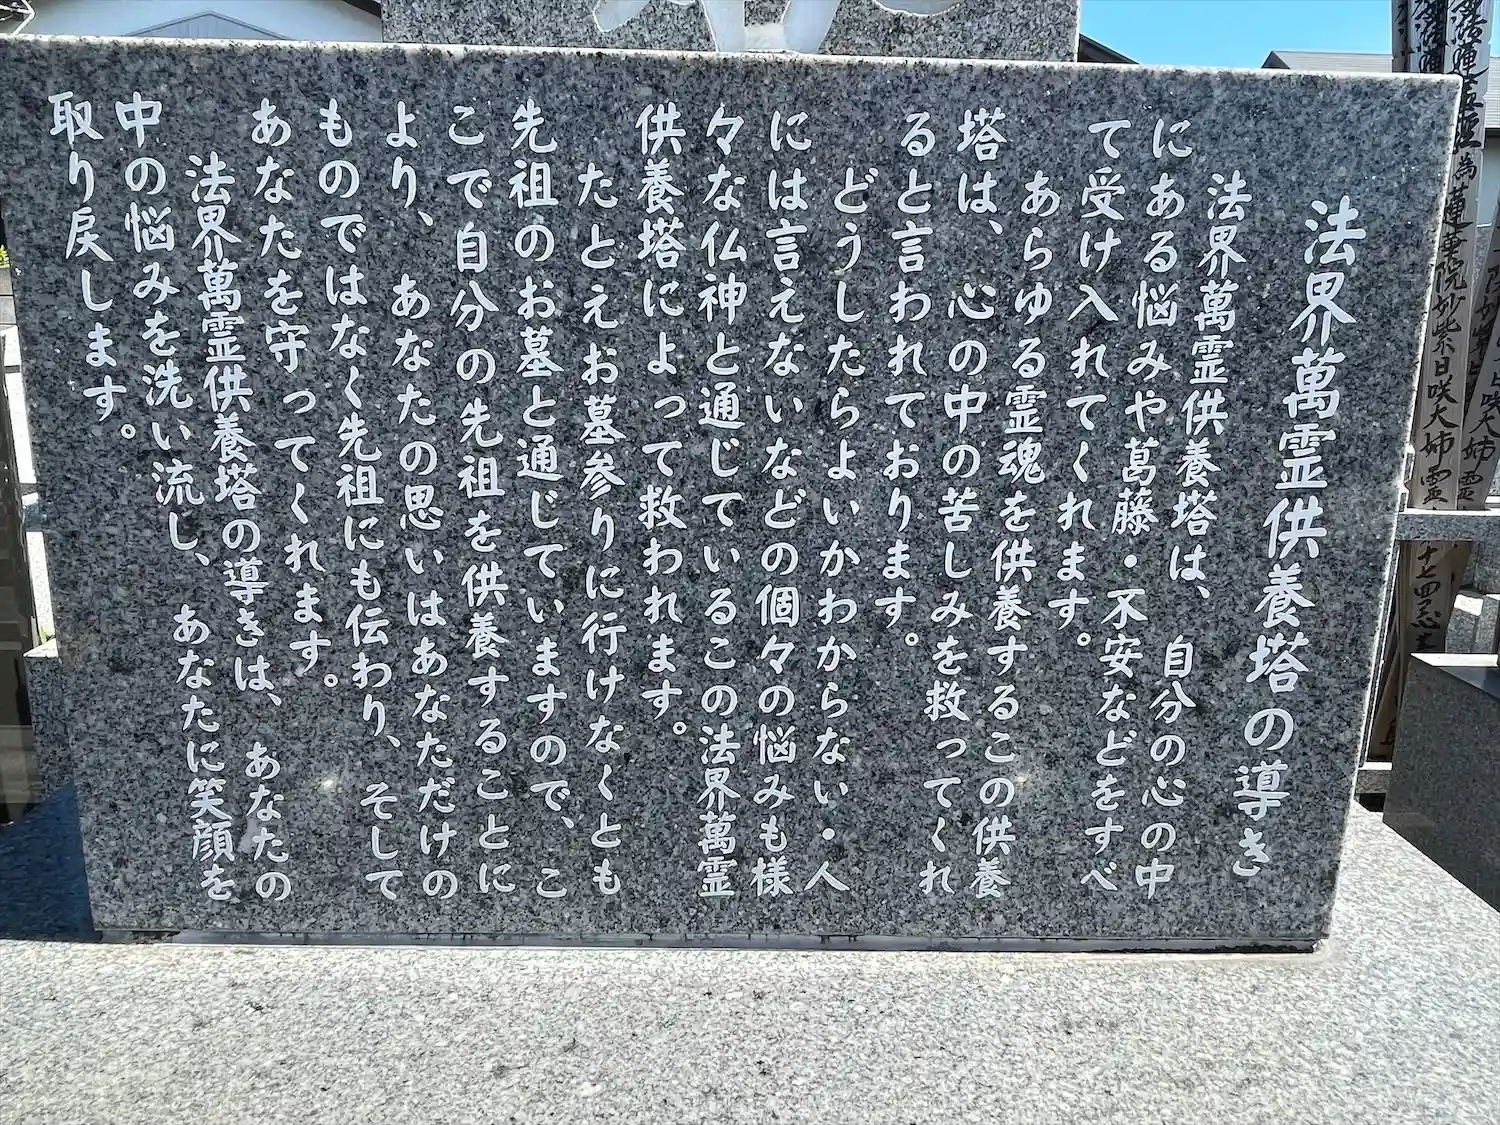 法界萬霊供養塔の導き
法界萬霊供養塔は、自分の心の中
にある悩みや葛藤・不安などをすべ
て受け入れてくれます。
あらゆる霊魂を供養するこの供養
塔は、心の中の苦しみを救ってくれ
ると言われております。
どうしたらよいかわからない・人
には言えないなどの個々の悩みも様
々な仏神と通じているこの法界萬霊
供養塔によって救われます。
たとえお墓参りに行けなくとも
先祖のお墓と通じていますので、こ
こで自分の先祖を供養することに
より、あなたの思いはあなただけの
ものではなく先祖にも伝わり、そして
あなたを守ってくれます。
法界萬霊供養塔の導きは、あなたの
中の悩みを洗い流し、あなたに笑顔を
取り戻します。
為蓮華院妙紫日咲大姉霊